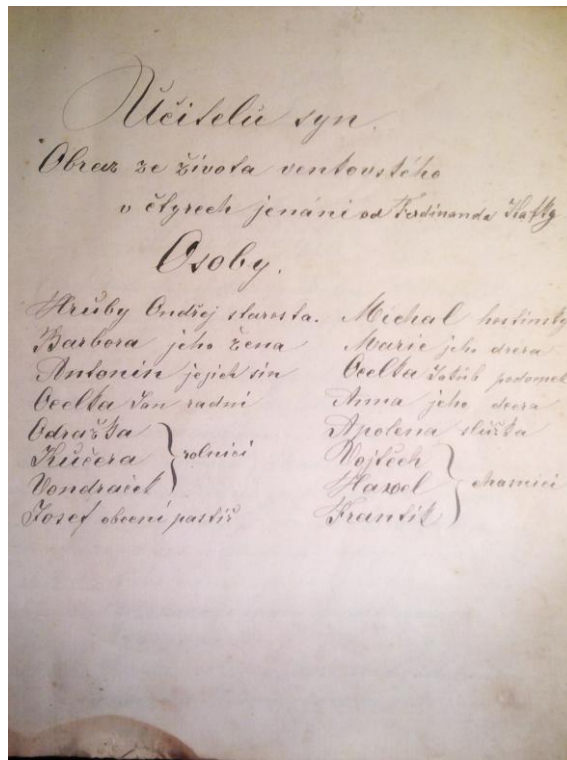 Učitelů syn.
Obraz ze života venkovského
v čtyrech jenání od Ferdinanda Kafky
Osoby.
Hrubý Ondřej starosta.
Barbora jeho žena
Antonín jejich sin
Ocelka Jan radní
Odraška
Kučera
Vondraček
rolníci
Josef obecní pastíř
Michal hostinský
Marie jeho dcera
Ocelka Jakub podomek
Anna jeho dcera
Apolena služka
Vojtěch
Havel
Frantík
chasníci